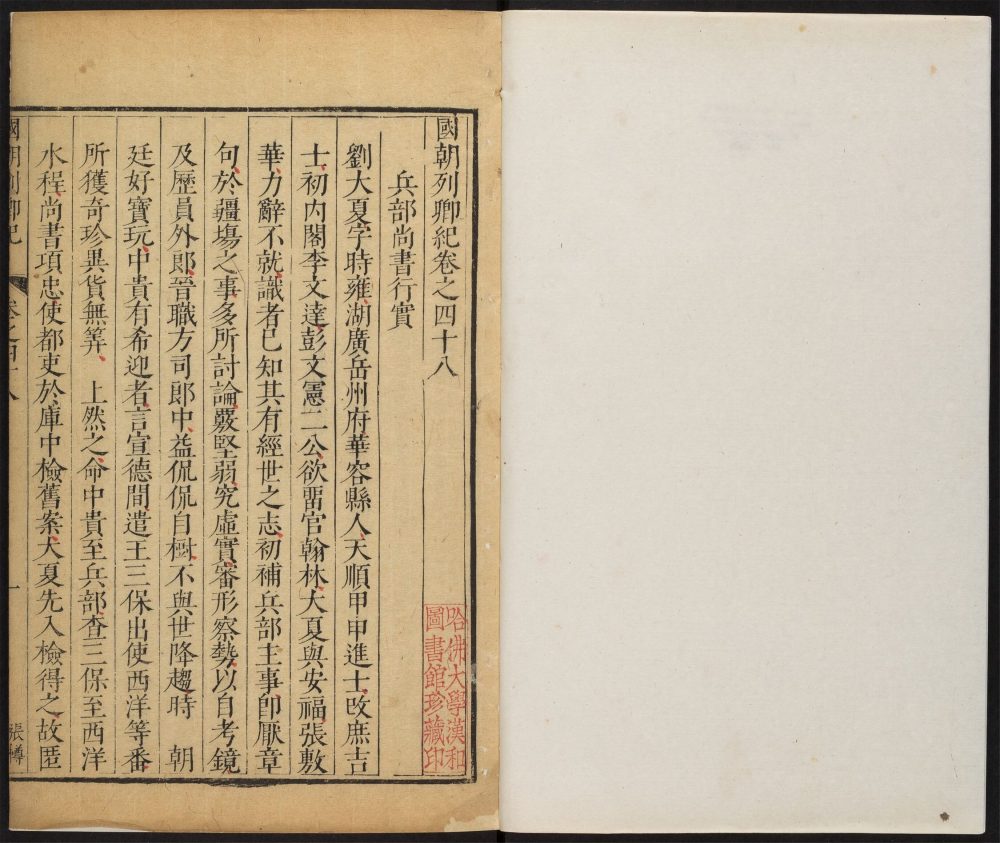 國朝列卿紀卷之四十八
兵部尚書行實
劉大夏字時雍湖廣岳州府華容縣人天順甲申進士改庶吉
士初内閣李文達彭文憲二公欲畱官翰林大夏與安福張敷
華力辭不就識者已知其有經世之志初補兵部主事卽厭章
句於疆塲之事多所討論覈堅弱究虛實審形察勢以自考鏡
及歷員外郎晉職方司郎中益侃侃自樹不與世降趨時 朝
廷好寶玩中貴有希迎者言宣德間遣王三保出使西洋等番
所獲奇珍異貨無筭 上然之命中貴至兵部查三保至西洋
水程尚書項忠使都吏於庫中檢舊案大夏先入檢得之故匿
國朝列卿紀 卷之四十八 一 張樽
哈佛大學漢和
圖書館珍藏印